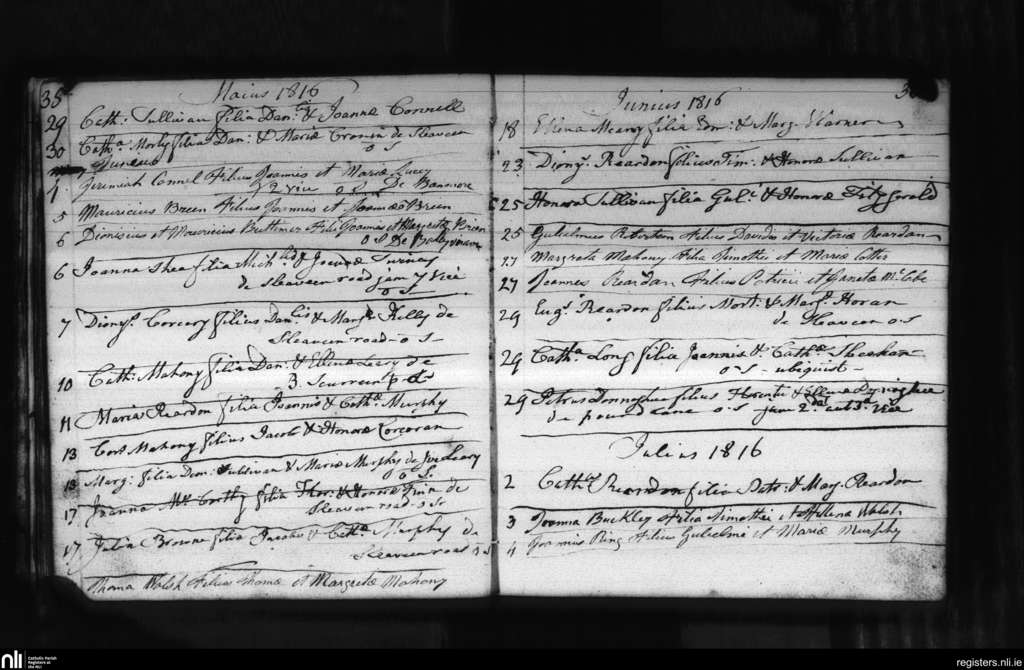 38
Maius 1816
29 Cath: Sullivan filia Dan: & Joannæ Connell
30 Catha Morly filia Dan: & Mariæ Cronin de Sleaveen
o s
Junius
4 Jeremiah Connel Filius Joannis et Mariæ Lucey
2 vice o s De Banmore
5 Mauricius Breen Filius Joannis et Joannæ Breen
6 Dionisius et Mauricius Buttimer Filii Joannis et Margretæ Breen
o s De
6 Joanna Shea filia Mich:
de Sleaveen road jam vice
o s
7 Diony: Corcory filius Dan: & Marg: Kelly de
Sleaveen road - o s -
10 Cath: Mahony filia Dan: & Ellena Leary de
3.
11 Maria Reardon filia Joannis & Catha Murphy
13 Cors Mahony filius Jacob & Honoræ Corcoran
13 Marg: filia Dan: Sullivan & Mariæ Murphy de
o s.
17 Joanna Mc Carthy filia Thos: & Honoræ de
Sleaveen road o s
17 Julia Browne filia Jacobi & Catha Murphy de
Sleaveen road o s
Thoma Walsh Filius Thomæ et Margretæ Mahony
Junius 1816
18 Ellena Meany filia Edm: & Marg:
23 Diony: Reardon filius Tim: & Honoræ Sullivan
25 Honora Sullivan filia Gul: & Honoræ Fitzgerald
25 Gulielmus Filius Davidis et Victoriæ Reardan
27 Margreta Mahony Filia Timothei et Mariæ Cotter
27 Joannes Reardan Filius Patricii et Mc Cabe
29 Eug: Reardon filius Mort: & Marg: Horan
de Sleaveen o s
29 Catha Long filia Joannis & Cathæ Sheehan
o s - ubiquist -
29 Petrus Donnoghue filius &
de pound lane o s jam 2 vice
Julius 1816
2 Catha Reardon filia Patr: & Mary Reardon
3 Joanna Buckley Filia Timothei et Hellena Walsh
4 Joannis Ring Filius Gulielmi et Mariæ Murphy
nli
Catholic Parish
Registers at
the NLI
registers.nli.ie